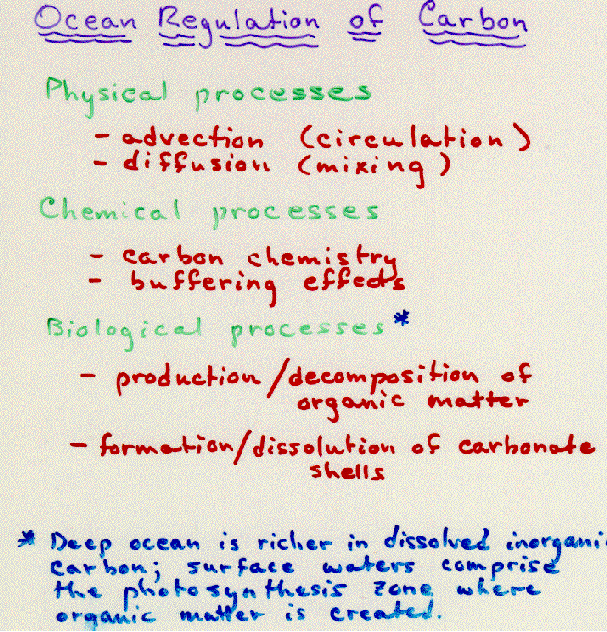 Ocean Regulation of Carbon
Physical processes
- advection (circulation)
- diffusion (mixing)
Chemical processes
- carbon chemistry
- buffering effects
Biological processes*
- production/decomposition of
organic matter
- formation/dissolution of carbonate
shells
* Deep ocean is richer in dissolved inorgani
carbon; surface waters comprise
the photosynthesis zone where
organic matter is created.